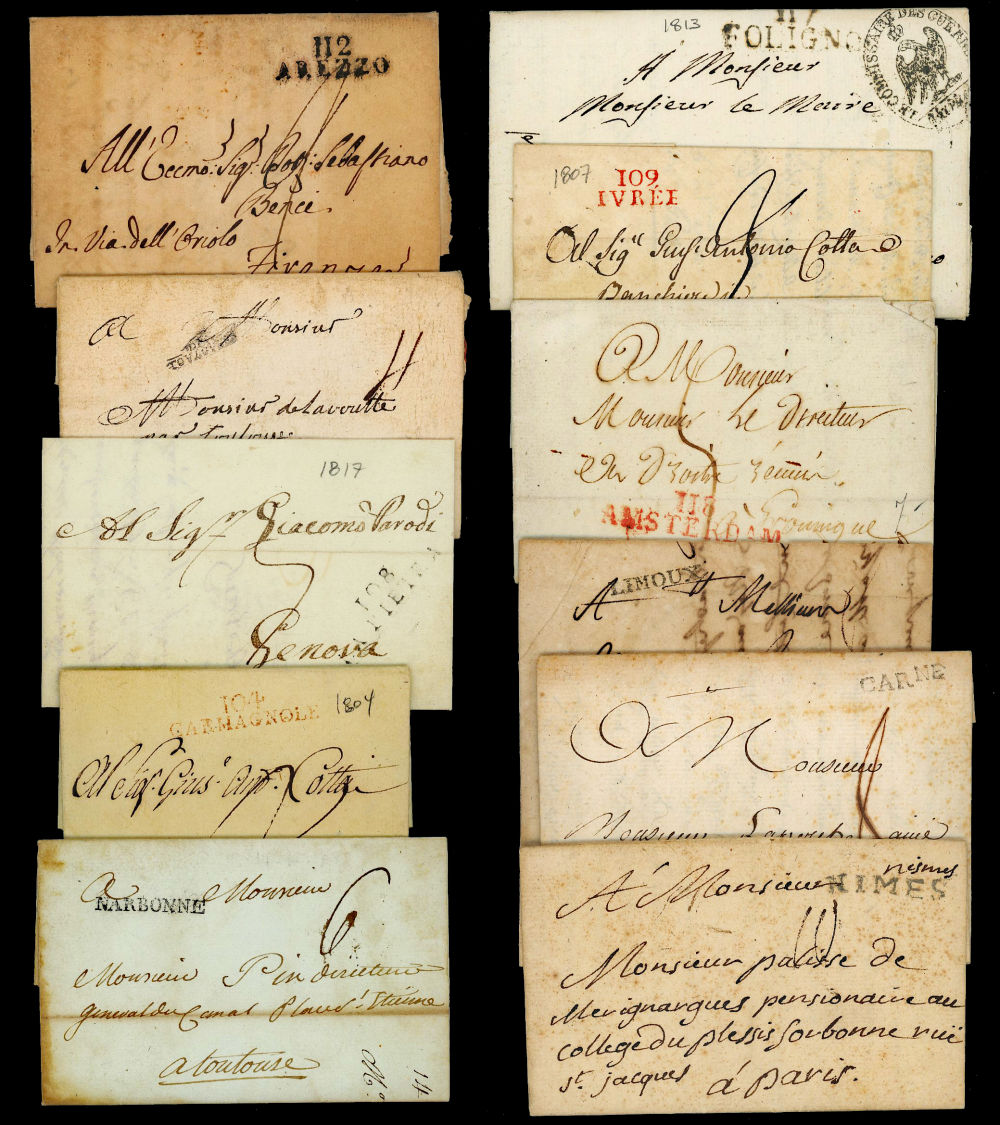 112
AREZZO
All' Eccmo: Sigr. Dott: Sebastiano
Benci
In Via dell' Oriolo
Firenze
A Monsieur
Monsieur de Lavoutte
par Toulouse
1817
Al Sigr. Giacomo Parodi
108
Genova
104
CARMAGNOLE
1804
Al Sigr. Gius.e Anto. Cotta
A Monsieur
NARBONNE
6
Monsieur Pin directeur
general du Canal Place St. Etienne
a toulouse
14
1813
117
FOLIGNO
COMMISSAIRE DES GUERRES
A Monsieur
Monsieur le Maire
1807
109
IVRÉE
Al Sigr. Antonio Cotta
Banchiere
A Monsieur
Monsieur Le Directeur
118
AMSTERDAM
LIMOUX
A Messieurs
CARNE
A Monsieur
Monsieur
nismes
A Monsieur
NIMES
Monsieur palisse de
Merignargues pensionaire au
college du plessis sorbonne ruë
st. jacques
á paris.